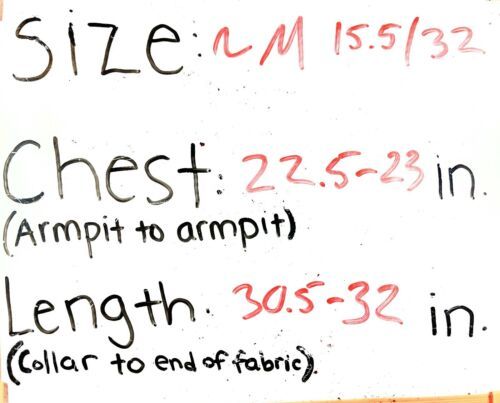 Size: ~ M 15.5/32
Chest: 22.5-23 in.
(Armpit to armpit)
Length: 30.5-32 in.
(Collar to end of fabric)